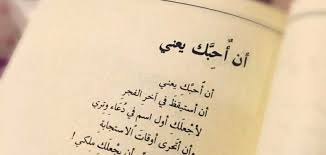 أن أُحِبَّك يعني
أن أُحِبَّكِ يعني
أن أستيقظَ في آخرِ الفجرِ
لأجعلَكِ أول اسمٍ في دُعاءِ وتري
أن أتحرى أوقاتَ الاستجابة
أن يجعلَكِ ملكي !